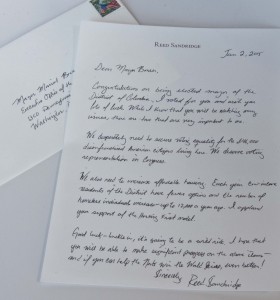 Mayor Muriel Bowser
Executive Office of the
1350 Pennsylvania
Washington,
REED SANDRIDGE
Jan 2, 2015
Dear Mayor Bowser,
Congratulations on being elected mayor of the
District of Columbia. I voted for you and wish you
lots of luck. While I know that you will be working many
issues, there are two that are very important to me.
We desperately need to secure voting equality for the
disenfranchised American citizens living here. We deserve voting
representation in Congress.
We also need to increase affordable housing. Each year low-income
residents of the District have fewer options and the number of
homeless individuals increases - up to a year ago. I applaud
your support of the Housing First model.
Good luck - buckle in, it's going to be a wild ride. I hope that
you will be able to make significant progress on the above items -
and if you can help the Nats win the World Series, even better!
Sincerely,
Reed Sandridge